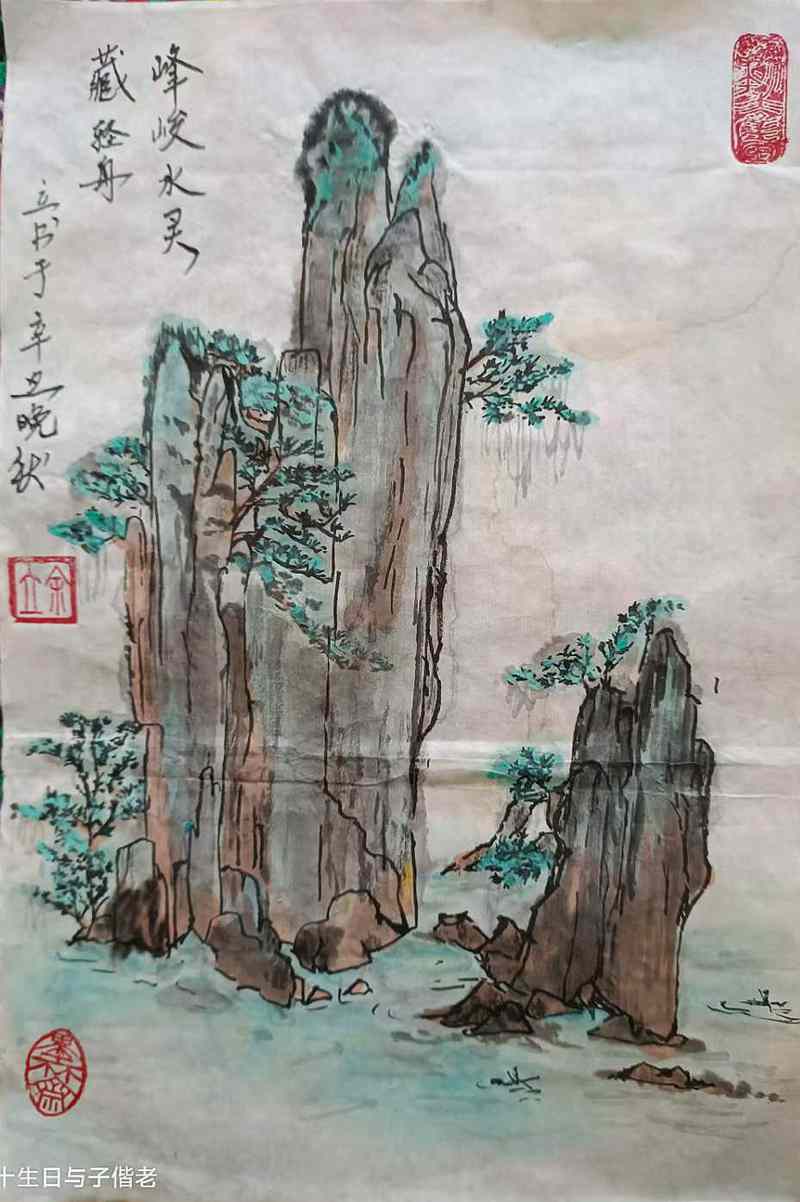 峰峻水灵
藏轻舟
立书于辛丑晚秋
余立
十生日与子偕老